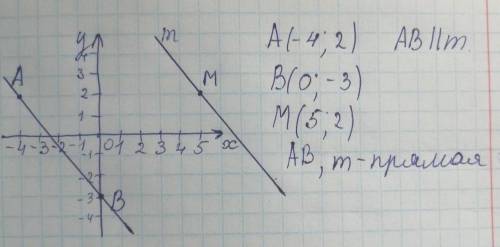 A(-4; 2) AB||m
B(0; -3)
M(5; 2)
AB, m-прямая
y
m
4
3
A
2
M
1
-4 -3 -2 -1 0 1 2 3 4 5 x
-1
-2
-3
B
-4